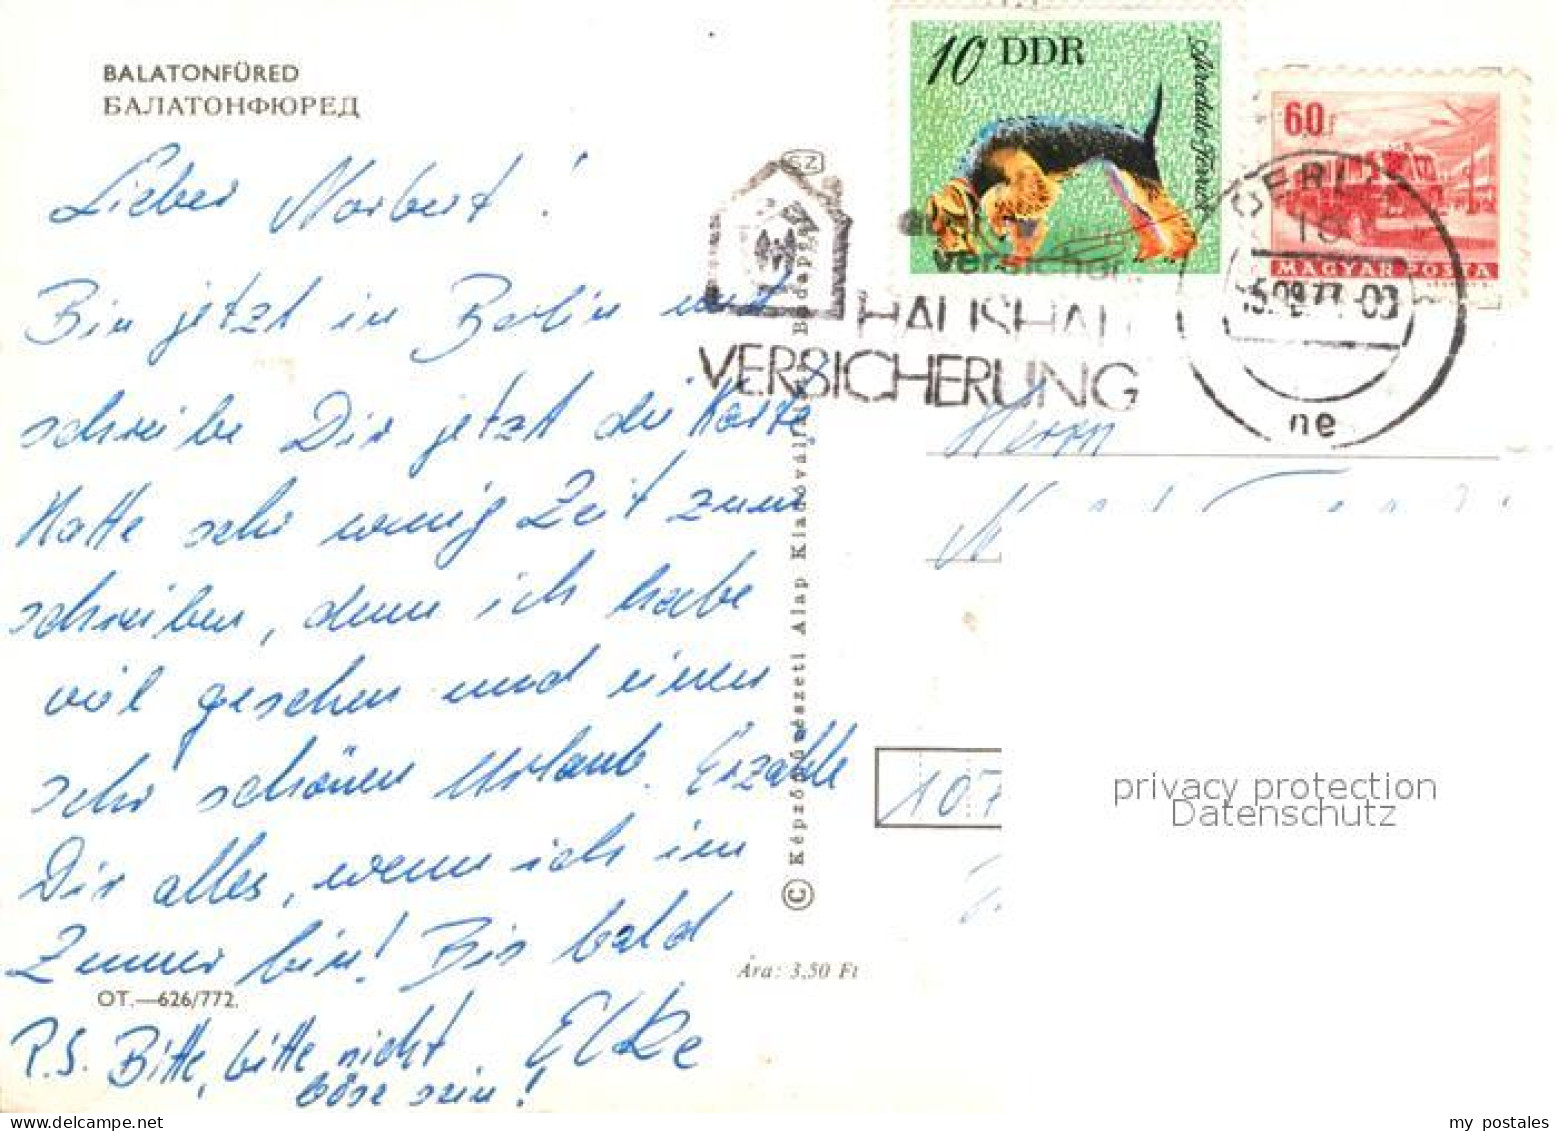 BALATONFÜRED
БАЛАТОНФЮРЕД
Lieber Norbert!
Bin jetzt in Berlin und
schreibe Dir jetzt die Karte
Hatte sehr wenig Zeit zum
schreiben, denn ich habe
viel gesehen und einen
sehr schönen Urlaub. Erzähle
Dir alles, wenn ich im
Zimmer bin! Bis bald
Elke
P.S. Bitte, bitte nicht
böse sein!
OT.—626/772.
Ára: 3,50 Ft
© Képzőművészeti Alap Kiadóvállalata, Budapest
SZ
10 DDR
Airedale-Terrier
60f
MAGYAR POSTA
HAUSHALT
VERSICHERUNG
BERL
ne
Herrn
107
privacy protection
Datenschutz
my postales